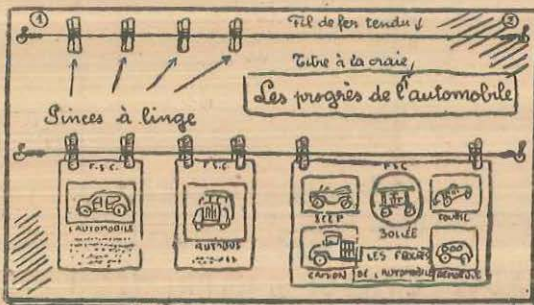 1
Fil de fer tendu
2
Titre à la craie,
Les progrès de l'automobile
Pinces à linge
F.S.C.
F.S.C
F.S.C
L'AUTOMOBILE
AUTOBUS
BOLÉE
CAMION
LES PROGRÈS
DE L'AUTOMOBILE